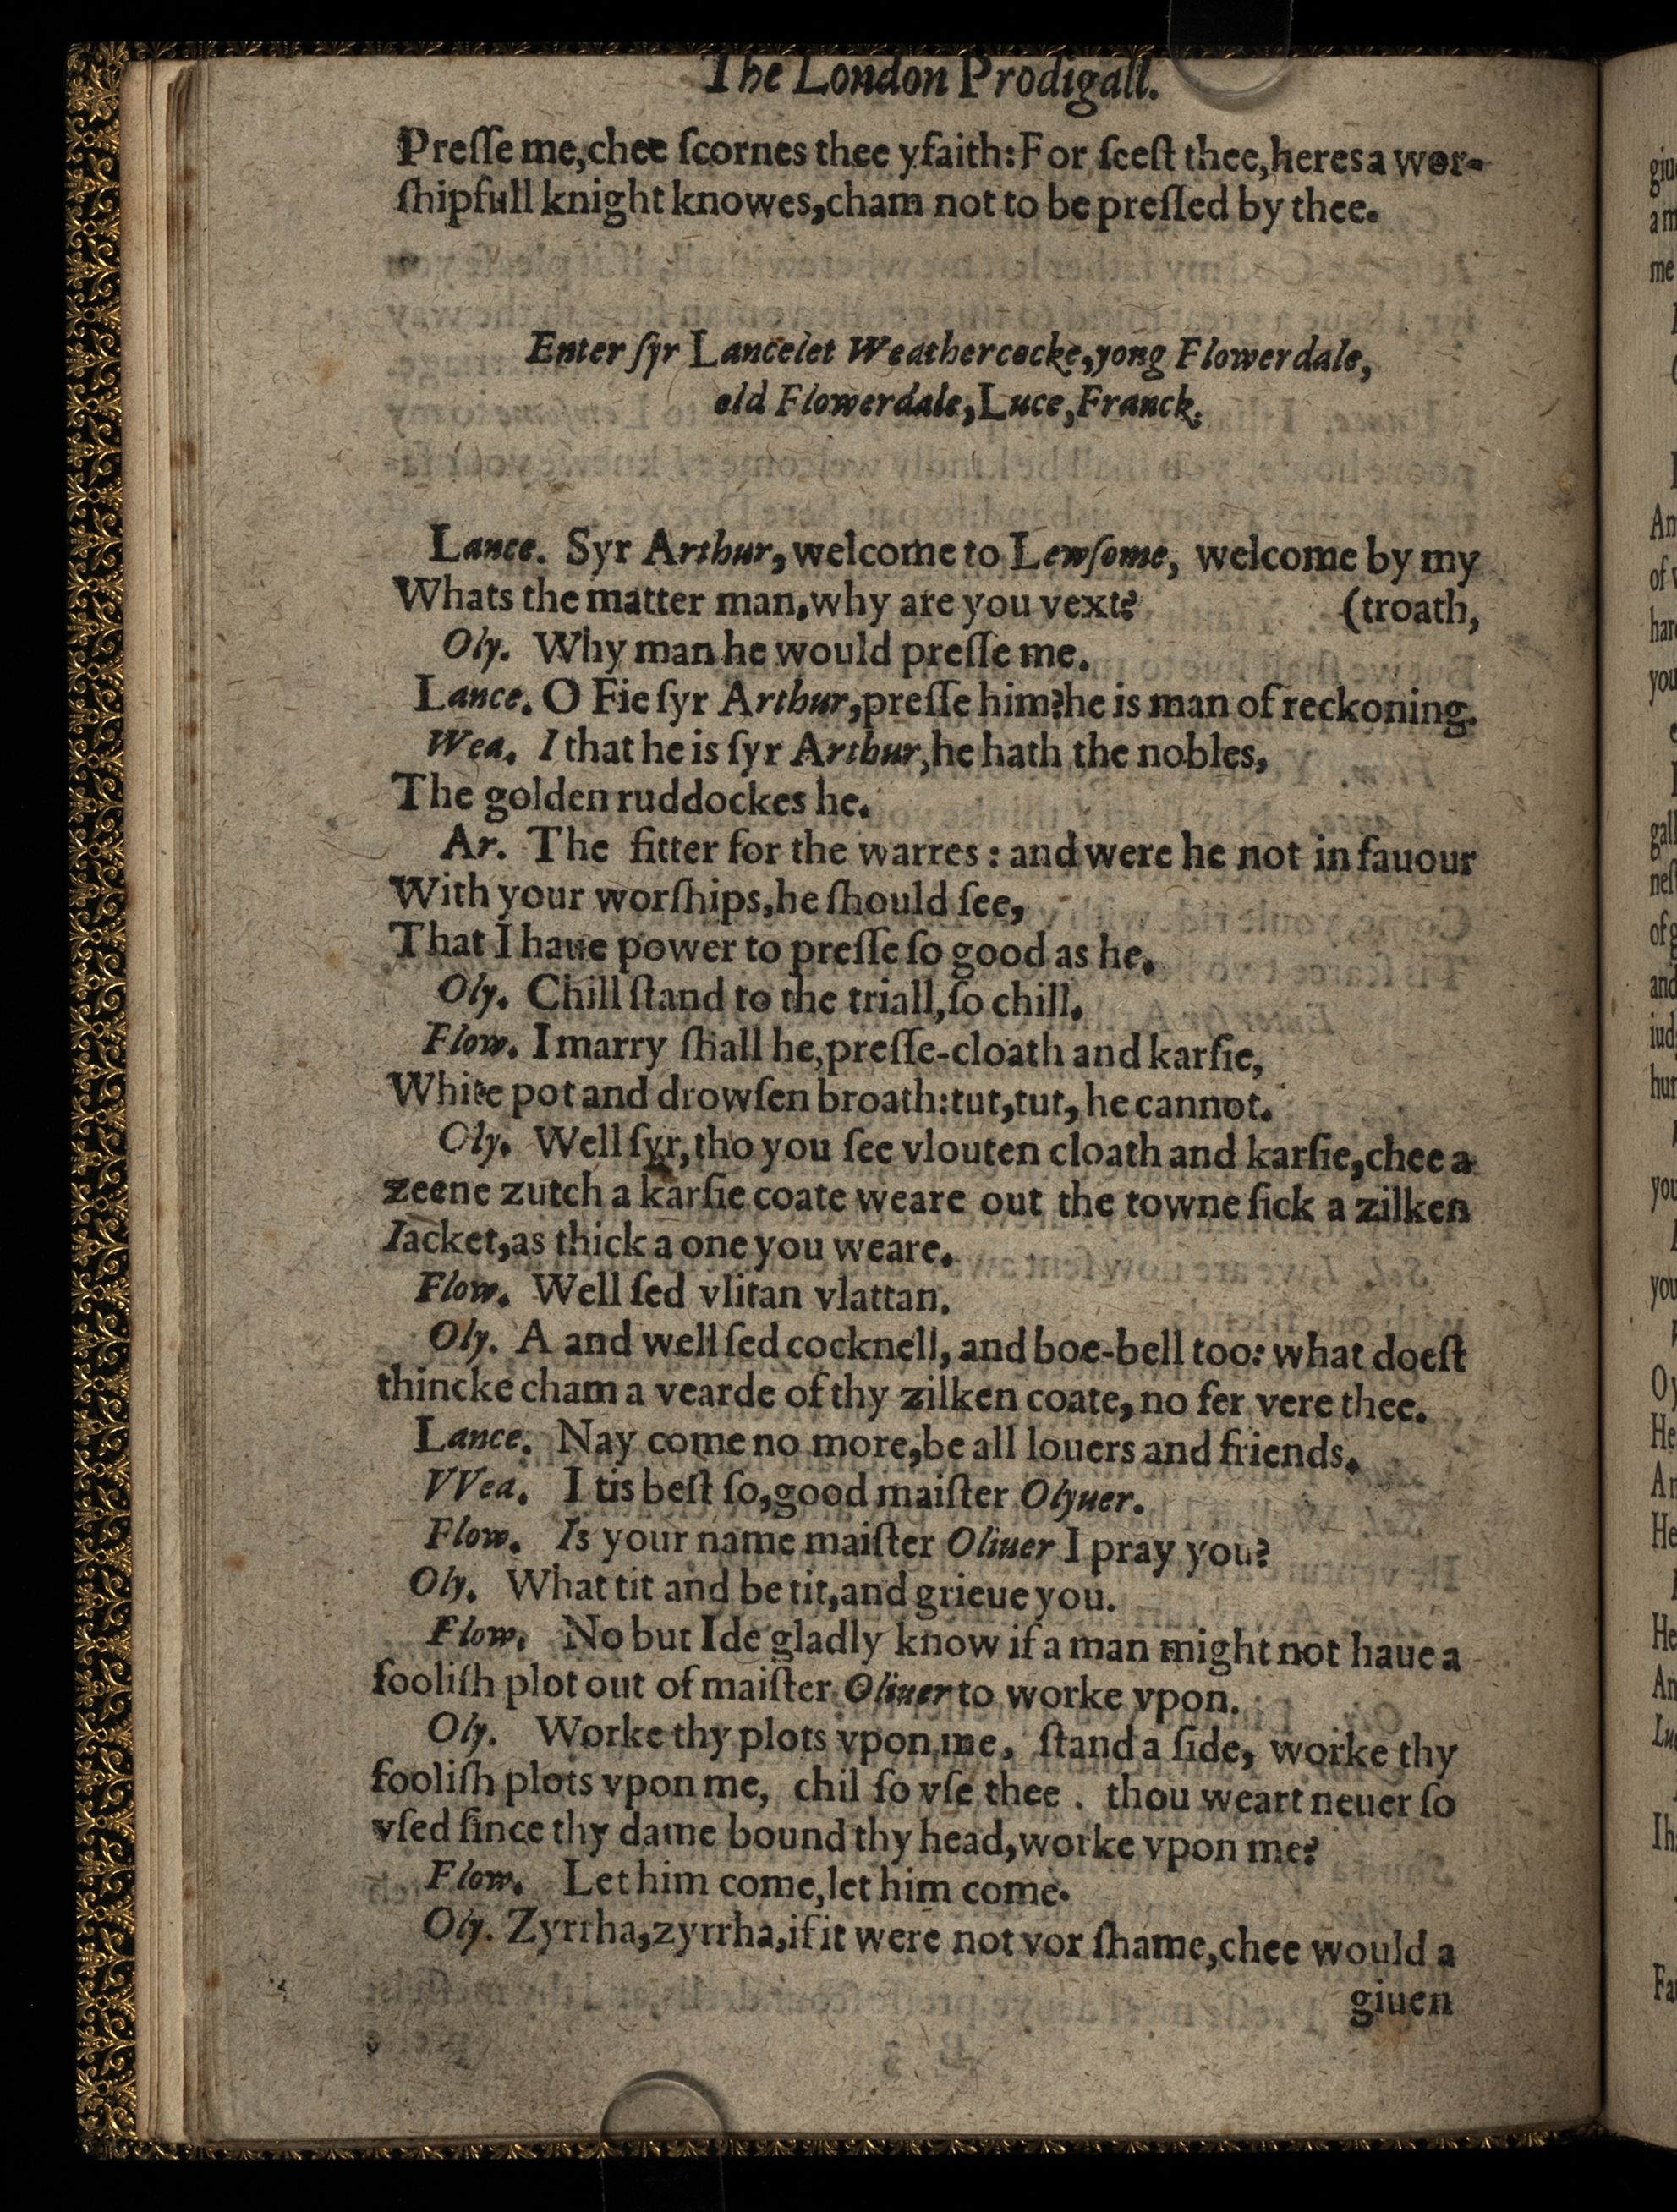 The London Prodigall.
Preſſe me,chee ſcornes thee yfaith:For ſeeſt thee,heres a wor-
ſhipfull knight knowes,cham not to be preſſed by thee.
Enter ſyr Lancelet Weathercocke,yong Flowerdale,
old Flowerdale,Luce,Franck.
Lance. Syr Arthur, welcome to Lewſome, welcome by my
Whats the matter man,why are you vext? (troath,
Oly. Why man he would preſſe me.
Lance. O Fie ſyr Arthur,preſſe him?he is man of reckoning.
Wea. I that he is ſyr Arthur,he hath the nobles,
The golden ruddockes he.
Ar. The fitter for the warres : and were he not in fauour
With your worſhips,he ſhould ſee,
That I haue power to preſſe ſo good as he.
Oly. Chill ſtand to the triall,ſo chill.
Flow. I marry ſhall he,preſſe-cloath and karſie,
White pot and drowſen broath:tut,tut, he cannot.
Oly. Well ſyr,tho you ſee vlouten cloath and karſie,chee a
zeene zutch a karſie coate weare out the towne ſick a zilken
Iacket,as thick a one you weare.
Flow. Well ſed vlitan vlattan.
Oly. A and well ſed cocknell, and boe-bell too: what doeſt
thincke cham a vearde of thy zilken coate, no fer vere thee.
Lance. Nay come no more,be all louers and friends.
VVea. I tis beſt ſo,good maiſter Olyuer.
Flow. Is your name maiſter Oliuer I pray you?
Oly. What tit and be tit,and grieue you.
Flow. No but Ide gladly know if a man might not haue a
fooliſh plot out of maiſter Oliuer to worke vpon.
Oly. Worke thy plots vpon me, ſtand a ſide, worke thy
fooliſh plots vpon me, chil ſo vſe thee . thou weart neuer ſo
vſed ſince thy dame bound thy head,worke vpon me?
Flow. Let him come,let him come.
Oly. Zyrrha,zyrrha,if it were not vor ſhame,chee would a
giuen